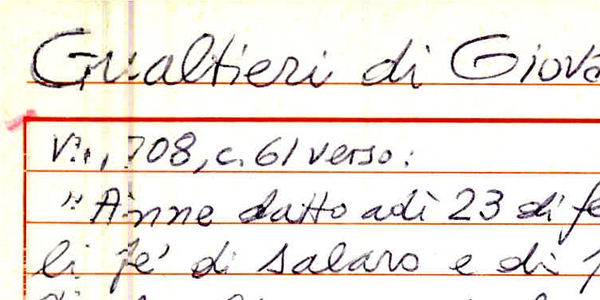 Gualtieri di Giova
V.., 708, c. 61 verso:
"Anne datto adì 23 di fe
li fe' di salaro e di